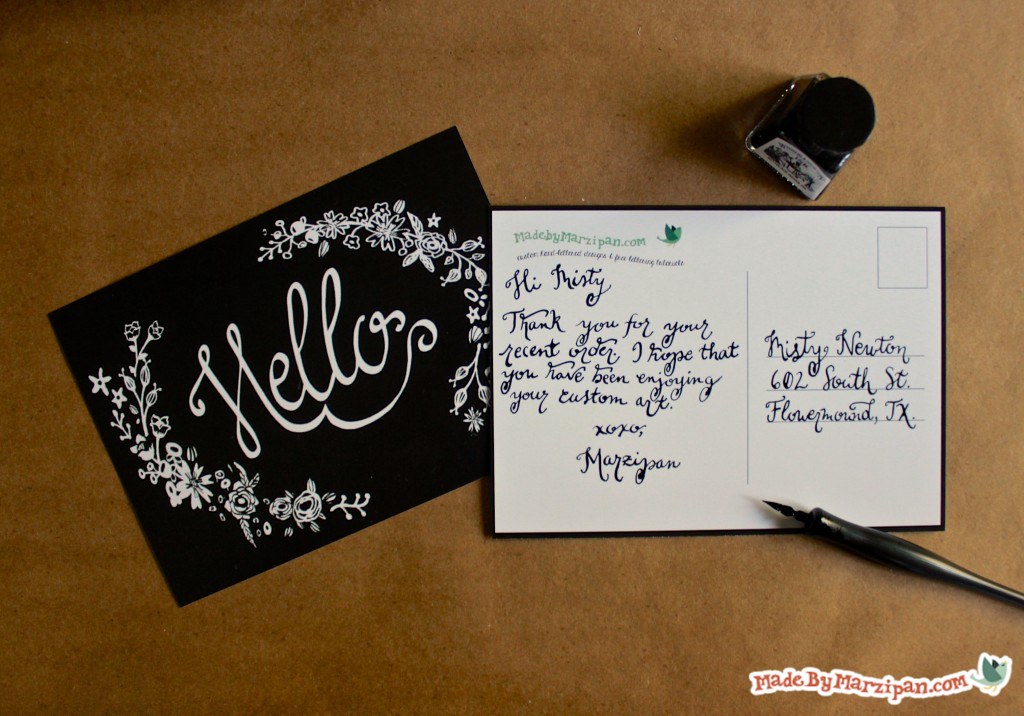 Hello
MadebyMarzipan.com
custom hand-lettered designs & free lettering tutorials
Hi Misty
Thank you for your
recent order. I hope that
you have been enjoying
your custom art.
xoxo,
Marzipan
Misty Newton
602 South St.
Flowermound, TX.
MadeByMarzipan.com